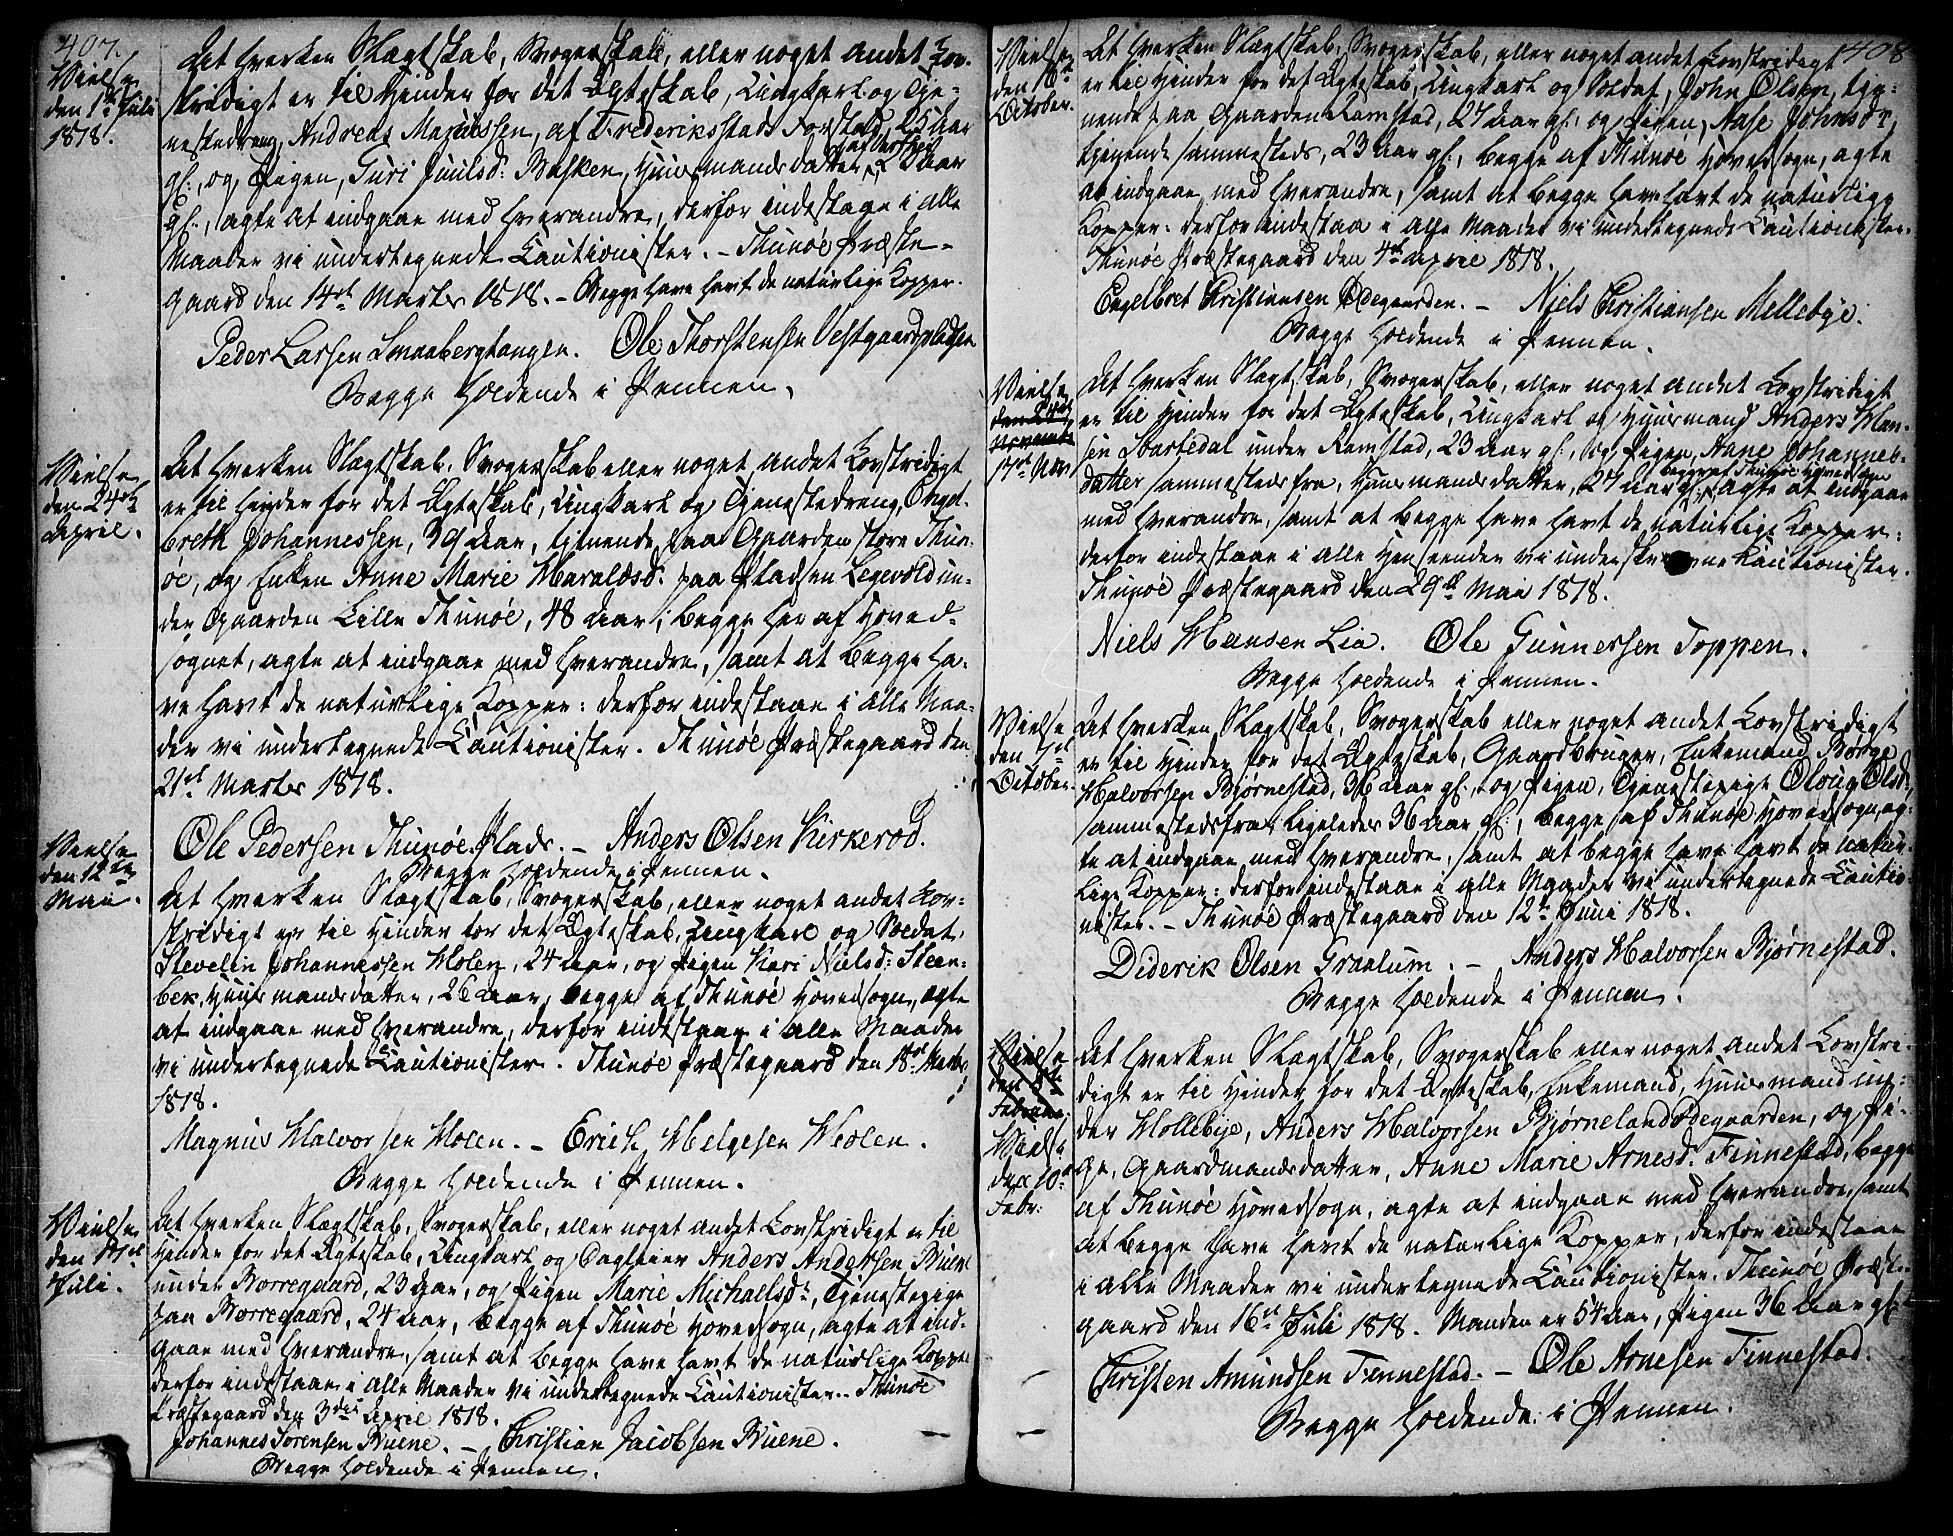 407.
Vielse
den 1ste Juli
1818.
At hverken Slægtskab, Svogerskab, eller noget andet Lov-
stridigt er til Hinder for det Ægteskab, Ungkarl og Tje-
nestedreng, Andreas Mariussen, af Frederiksstads Forstad, 25 Aar
af Værket
gl:, og Pigen, Turi Juulsd: Basken, Huusmandsdatter, 2 Aar
gl:, agte at indgaae med hverandre, derfor indestaae i alle
Maader vi undertegnede Cautionister. - Thunöe Præste-
gaard den 14de Marts 1818. - Begge have havt de naturlige Kopper.
Peder Larsen Smaabergtangen. Ole Thorstensen Vestgaardpladsen
Begge holdende i Pennen.
Vielse
den 24de
April.
At hverken Slægtskab, Svogerskab eller noget andet Lovstridigt
er til Hinder for det Ægteskab, Ungkarl og Tjenestedreng, Engel-
breth Johannessen, 39 Aar, tjenende paa Gaarden store Thun-
öe, og Enken Anne Marie Haraldsd: paa Pladsen Legevold un-
der Gaarden Lille Thunöe, 48 Aar, begge her af Hoved-
sognet, agte at indgaae med hverandre, samt at begge ha-
ve havt de naturlige Kopper: derfor indestaae i alle Maa-
der vi undertegnede Cautionister. Thunöe Præstegaard den
21de Marts 1818.
Ole Pedersen Thunöe Plads. - Anders Olsen Kirkeröd.
Begge holdende i Pennen.
Vielse
den 12te
Mai.
At hverken Slægtskab, Svogerskab, eller noget andet Lov-
stridigt er til Hinder for det Ægteskab, Ungkarl og Soldat,
Stevelin Johannessen Holen, 24 Aar, og Pigen Kari Nielsd: Steen-
bek, Huusmandsdatter, 26 Aar, begge af Thunöe Hovedsogn, agte
at indgaae med hverandre, derfor indestaae i alle Maader
vi undertegnede Cautionister. Thunöe Præstegaard den 18de Marts
1818.
Magnus Halvorsen Holen. - Erich Helgesen Holen.
Begge holdende i Pennen.
Vielse
den 17de
Juli.
At hverken Slægtskab, Svogerskab, eller noget andet Lovstridigt er til
Hinder for det Ægteskab, Ungkarl og Dagleier Anders Andersen Buene
under Borregaard, 23 Aar, og Pigen Marie Michaelsdr, Tjenestepige
paa Borregaard, 24 Aar, begge af Thunöe Hovedsogn, agte at ind-
gaae med hverandre, samt at begge have havt de naturlige Kopper
derfor indestaae i alle Maader vi undertegnede Cautionister. Thunöe
Præstegaard den 3die April 1818.
Johannes Sörensen Buene. - Christian Jacobsen Buene.
Begge holdende i Pennen.
1408
Vielse
den 16de
October.
At hverken Slægtskab, Svogerskab, eller noget andet Lovstridigt
er til Hinder for det Ægteskab, Ungkarl og Soldat, John Olsen, tje-
nende paa Gaarden Ramstad, 27 Aar gl: og Pigen, Aase Johnsdr,
tjenende sammesteds, 23 Aar gl:, begge af Thunöe Hovedsogn, agte
at indgaae med hverandre, samt at begge have havt de naturlige
Kopper: derfor indestaa i alle Maader vi undertegnede Cautionister.
Thunöe Præstegaard den 4de April 1818.
Engelbret Christiansen Ödegaarden. - Niels Christiansen Mellebye.
Begge holdende i Pennen.
Vielse
den 24de
Novemb:
17de Nov:
At hverken Slægtskab, Svogerskab, eller noget andet Lovstridigt
er til Hinder for det Ægteskab, Ungkarl og Huusmand Anders Han-
sen Svartedal under Ramstad, 23 Aar gl:, og Pigen, Anne Johannes-
begge af Thunöe Hovedsogn
datter sammestedsfra, Huusmandsdatter, 27 Aar gl:, agte at indgaae
med hverandre, samt at begge have havt de naturlige Kopper:
derfor indestaae i alle Henseender vi underskrevne Cautionister.
Thunöe Præstegaard den 29de Mai 1818.
Niels Hansen Lia. Ole Gunnersen Toppen.
Begge holdende i Pennen.
Vielse
den 7de
October.
At hverken Slægtskab, Svogerskab eller noget andet Lovstridigt
er til Hinder for det Ægteskab, Gaardbruger, Enkemand Börge
Halvorsen Björnestad, 36 Aar gl:, og Pigen, Tjenestepige Oloug Olsdr
sammestedsfra, ligeledes 36 Aar gl:, begge af Thunöe Hovedsogn, ag-
te at indgaae med hverandre, samt at begge have havt de natur-
lige Kopper: derfor indestaae i alle Maader vi undertegnede Cautio-
nister. - Thunöe Præstegaard den 12te Juni 1818.
Diderik Olsen Graalum. - Anders Halvorsen Björnestad.
Begge holdende i Pennen.
Vielse
den 5te
Februar.
Vielse
den 10de
Febr:
At hverken Slægtskab, Svogerskab eller noget andet Lovstri-
digt er til Hinder for det Ægteskab, Enkemand, Huusmand un-
der Mollebye, Anders Halvorsen Björnelandödegaarden, og Pi-
ge, Gaardmandsdatter, Anne Marie Arnesd: Finnestad, begge
af Thunöe Hovedsogn, agte at indgaae med hverandre, samt
at begge have havt de naturlige Kopper, derfor indestaae
i alle Maader vi undertegnede Cautionister. Thunöe Præste-
gaard den 16de Juli 1818. Manden er 54 Aar, Pigen 36 Aar gl:
Christen Amundsen Finnestad. - Ole Arnesen Finnestad.
Begge holdende i Pennen.